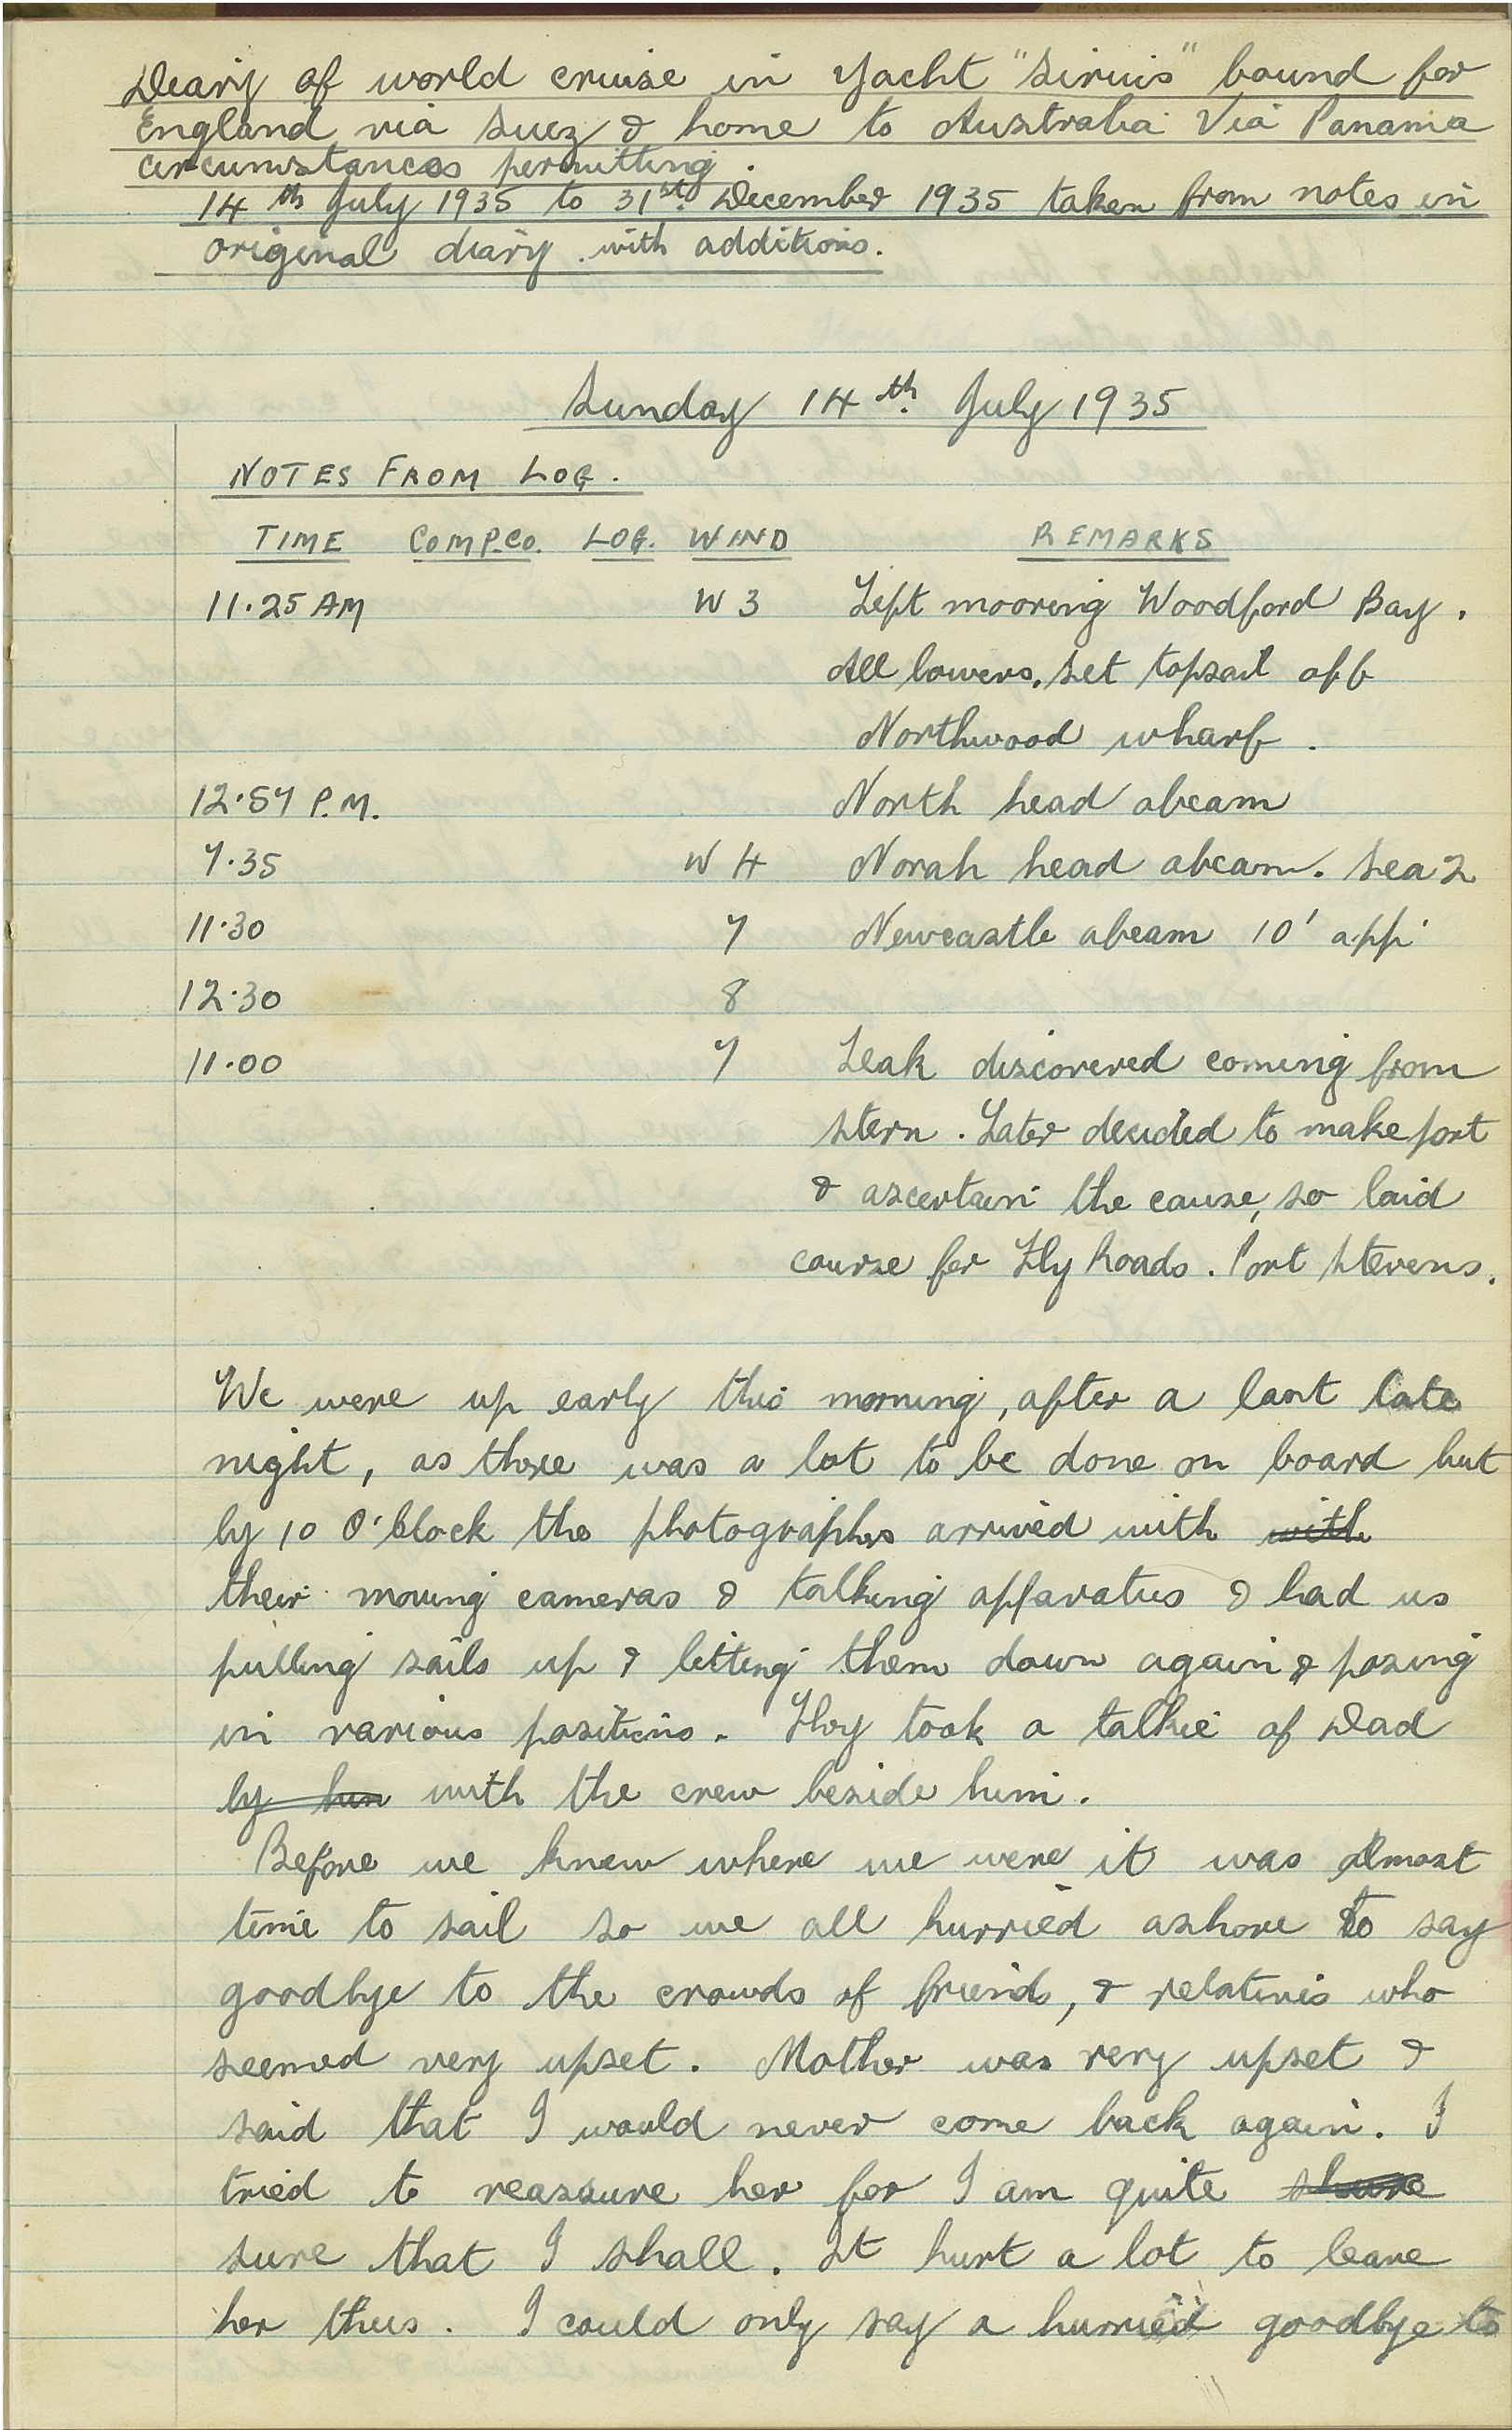 Diary of world cruise in Yacht "Sirius" bound for
England via Suez & home to Australia Via Panama
circumstances permitting.
14th July 1935 to 31st December 1935 taken from notes in
original diary with additions.
Sunday 14th July 1935
NOTES FROM LOG.
TIME COMP.CO. LOG. WIND REMARKS
11.25 AM W 3 Left mooring Woodford Bay.
All lowers, set topsail off
Northwood wharf.
12.57 P.M. North head abeam
7.35 W 4 Norah head abeam. Sea 2
11.30 7 Newcastle abeam 10' app.
12.30 8
11.00 7 Leak discovered coming from
stern. Later decided to make port
& ascertain the cause, so laid
course for Fly Roads. Port Stevens.
We were up early this morning, after a last late
night, as there was a lot to be done on board but
by 10 O'Clock the photographers arrived with with
their moving cameras & talking apparatus & had us
pulling sails up & letting them down again & posing
in various positions. They took a talkie of Dad
by him with the crew beside him.
Before we knew where we were it was almost
time to sail so we all hurried ashore to say
goodbye to the crowds of friends, & relatives who
seemed very upset. Mother was very upset &
said that I would never come back again. I
tried to reassure her for I am quite shure
sure that I shall. It hurt a lot to leave
her thus. I could only say a hurried goodbye to